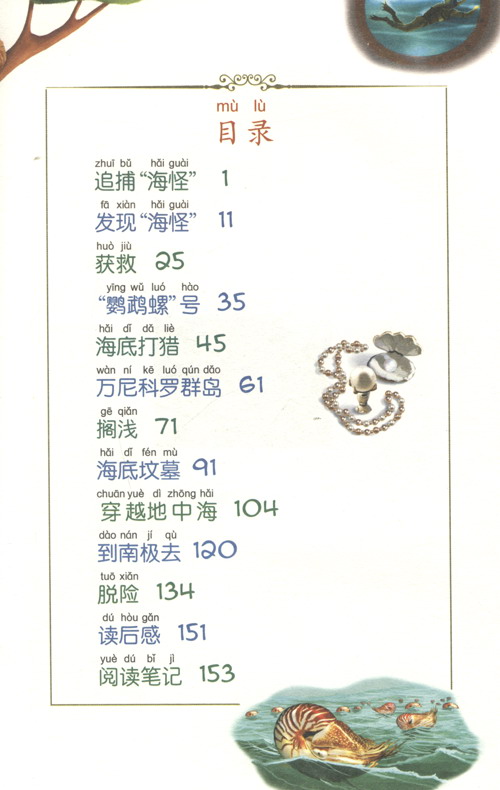 mù lù
目录
zhuī bǔ hǎi guài
追捕“海怪” 1
fā xiàn hǎi guài
发现“海怪” 11
huò jiù
获救 25
yīng wǔ luó hào
“鹦鹉螺”号 35
hǎi dǐ dǎ liè
海底打猎 45
wàn ní kē luó qún dǎo
万尼科罗群岛 61
gē qiǎn
搁浅 71
hǎi dǐ fén mù
海底坟墓 91
chuān yuè dì zhōng hǎi
穿越地中海 104
dào nán jí qù
到南极去 120
tuō xiǎn
脱险 134
dú hòu gǎn
读后感 151
yuè dú bǐ jì
阅读笔记 153